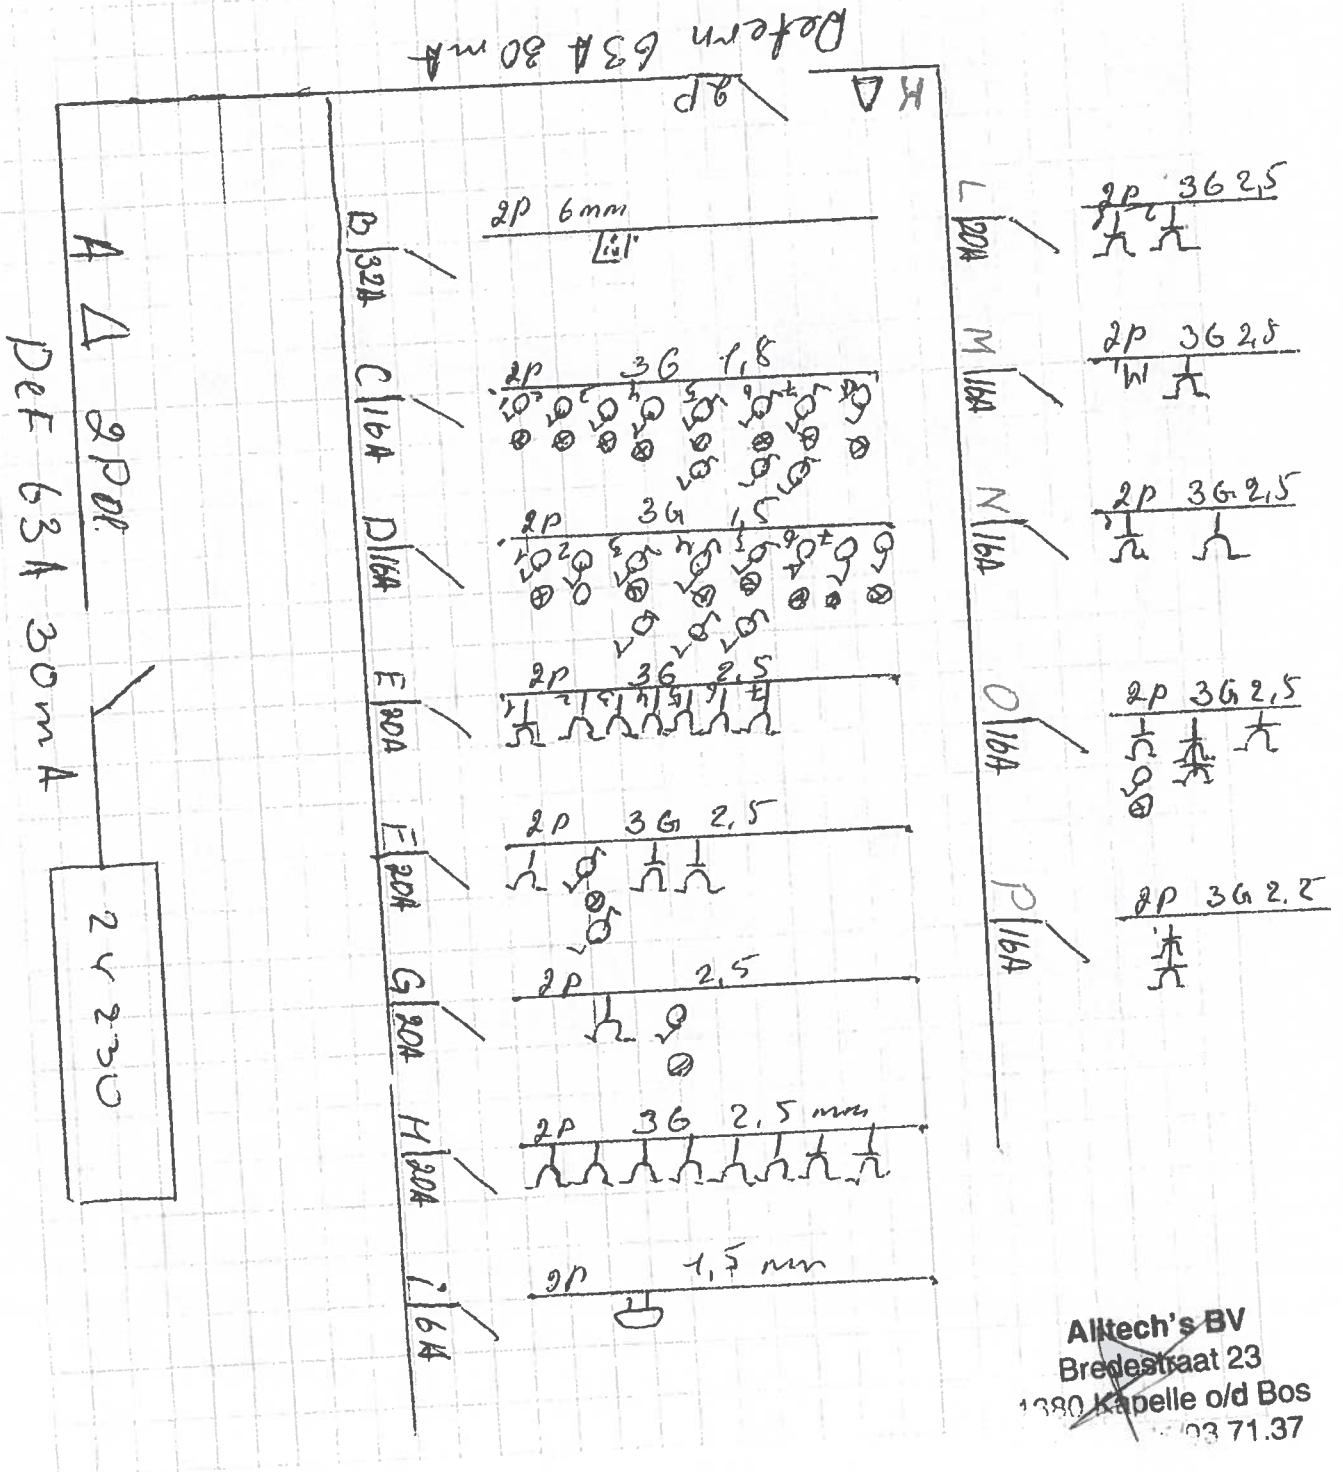 Defern 63A 30mA
2P
K Δ
A Δ 2Pol
DeF 63A 30mA
2 x 230
B 32A
2P 6mm
C 16A
2P 3G 1,5
1 2 3 4 5 6 7 8
D 16A
2P 3G 1,5
1 2 3 4 5 6 7
E 20A
2P 3G 2,5
1 2 3 4 5 6 7
F 20A
2P 3G 2,5
G 20A
2P 2,5
H 20A
2P 3G 2,5 mm
i 6A
2P 1,5 mm
L 20A
2P 3G 2,5
M 16A
2P 3G 2,5
N 16A
2P 3G 2,5
O 16A
2P 3G 2,5
P 16A
2P 3G 2.5
Alltech's BV
Bredestraat 23
1380 Kapelle o/d Bos
03 71.37